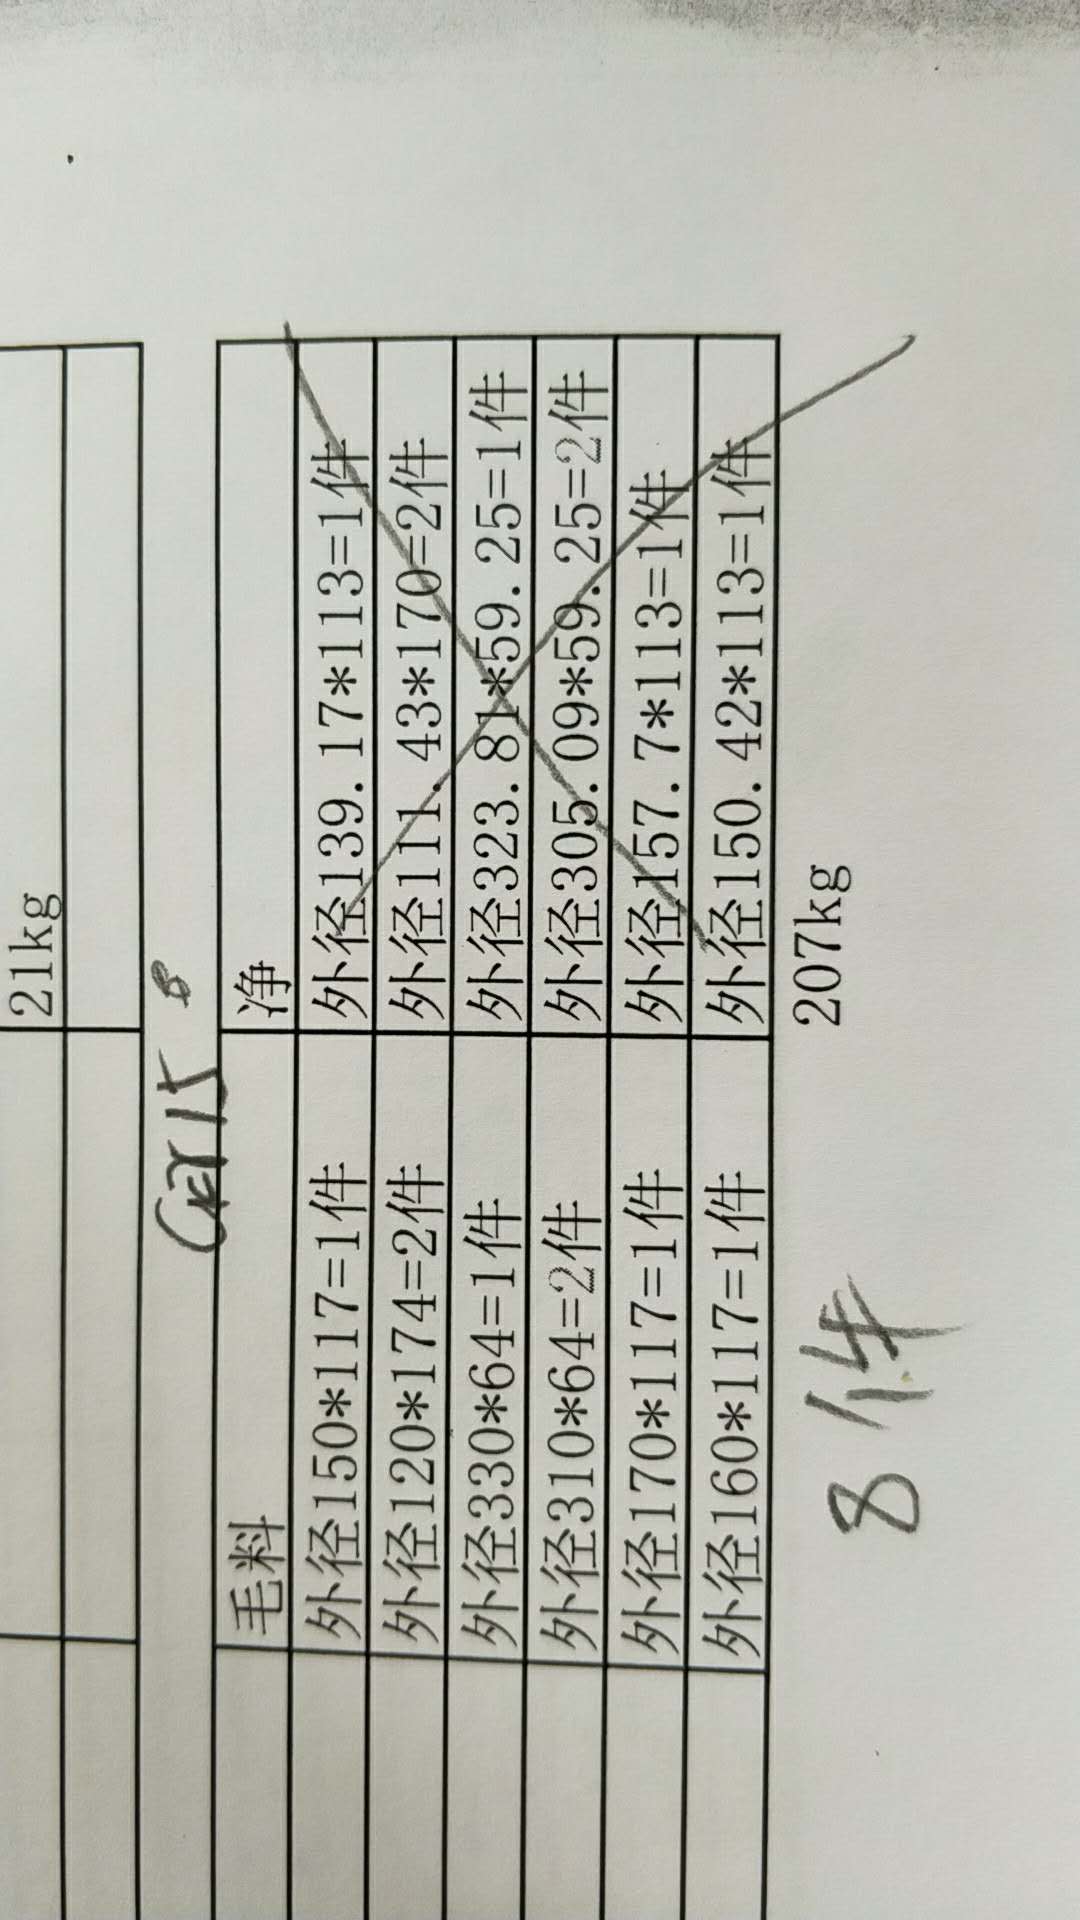 21kg
GCr15
毛料 净
外径150*117=1件 外径139.17*113=1件
外径120*174=2件 外径111.43*170=2件
外径330*64=1件 外径323.81*59.25=1件
外径310*64=2件 外径305.09*59.25=2件
外径170*117=1件 外径157.7*113=1件
外径160*117=1件 外径150.42*113=1件
207kg
8件